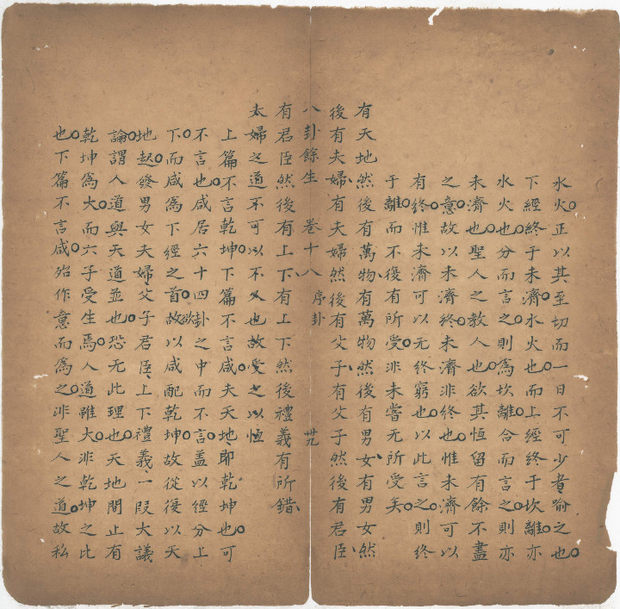 水火正以其至切而一日不可少者喻之也
下經終于未濟水火也而上經終于坎離亦
水火也分而言之則為坎離合而言之則亦
未濟也聖人之教人也欲其恒留有餘不盡
之意故以未濟終未濟非終也惟未濟可以
有終惟未濟可以无終窮也以此言之則終
于離而不復有所受非未嘗无所受矣
有天地然後有萬物有萬物然後有男女有男女然
後有夫婦有夫婦然後有父子有父子然後有君臣
八卦餘生 卷十八 序卦 卅九
有君臣然後有上下有上下然後禮義有所錯
夫婦之道不可以不久也故受之以恒
上篇不言乾坤下篇不言咸夫天地即乾坤也可
不言也咸居六十四卦之中而不言盖以經分上
下而咸為下經之首故欲以咸配乾坤故從後以天
地起發男女夫婦父子君臣上下禮義一段大議
論謂人道與天道並也恐无此理也天地間止有
乾坤為大而六子受生焉人道雖大非乾坤之比
也下篇不言咸殆作意而為之非聖人之道故私